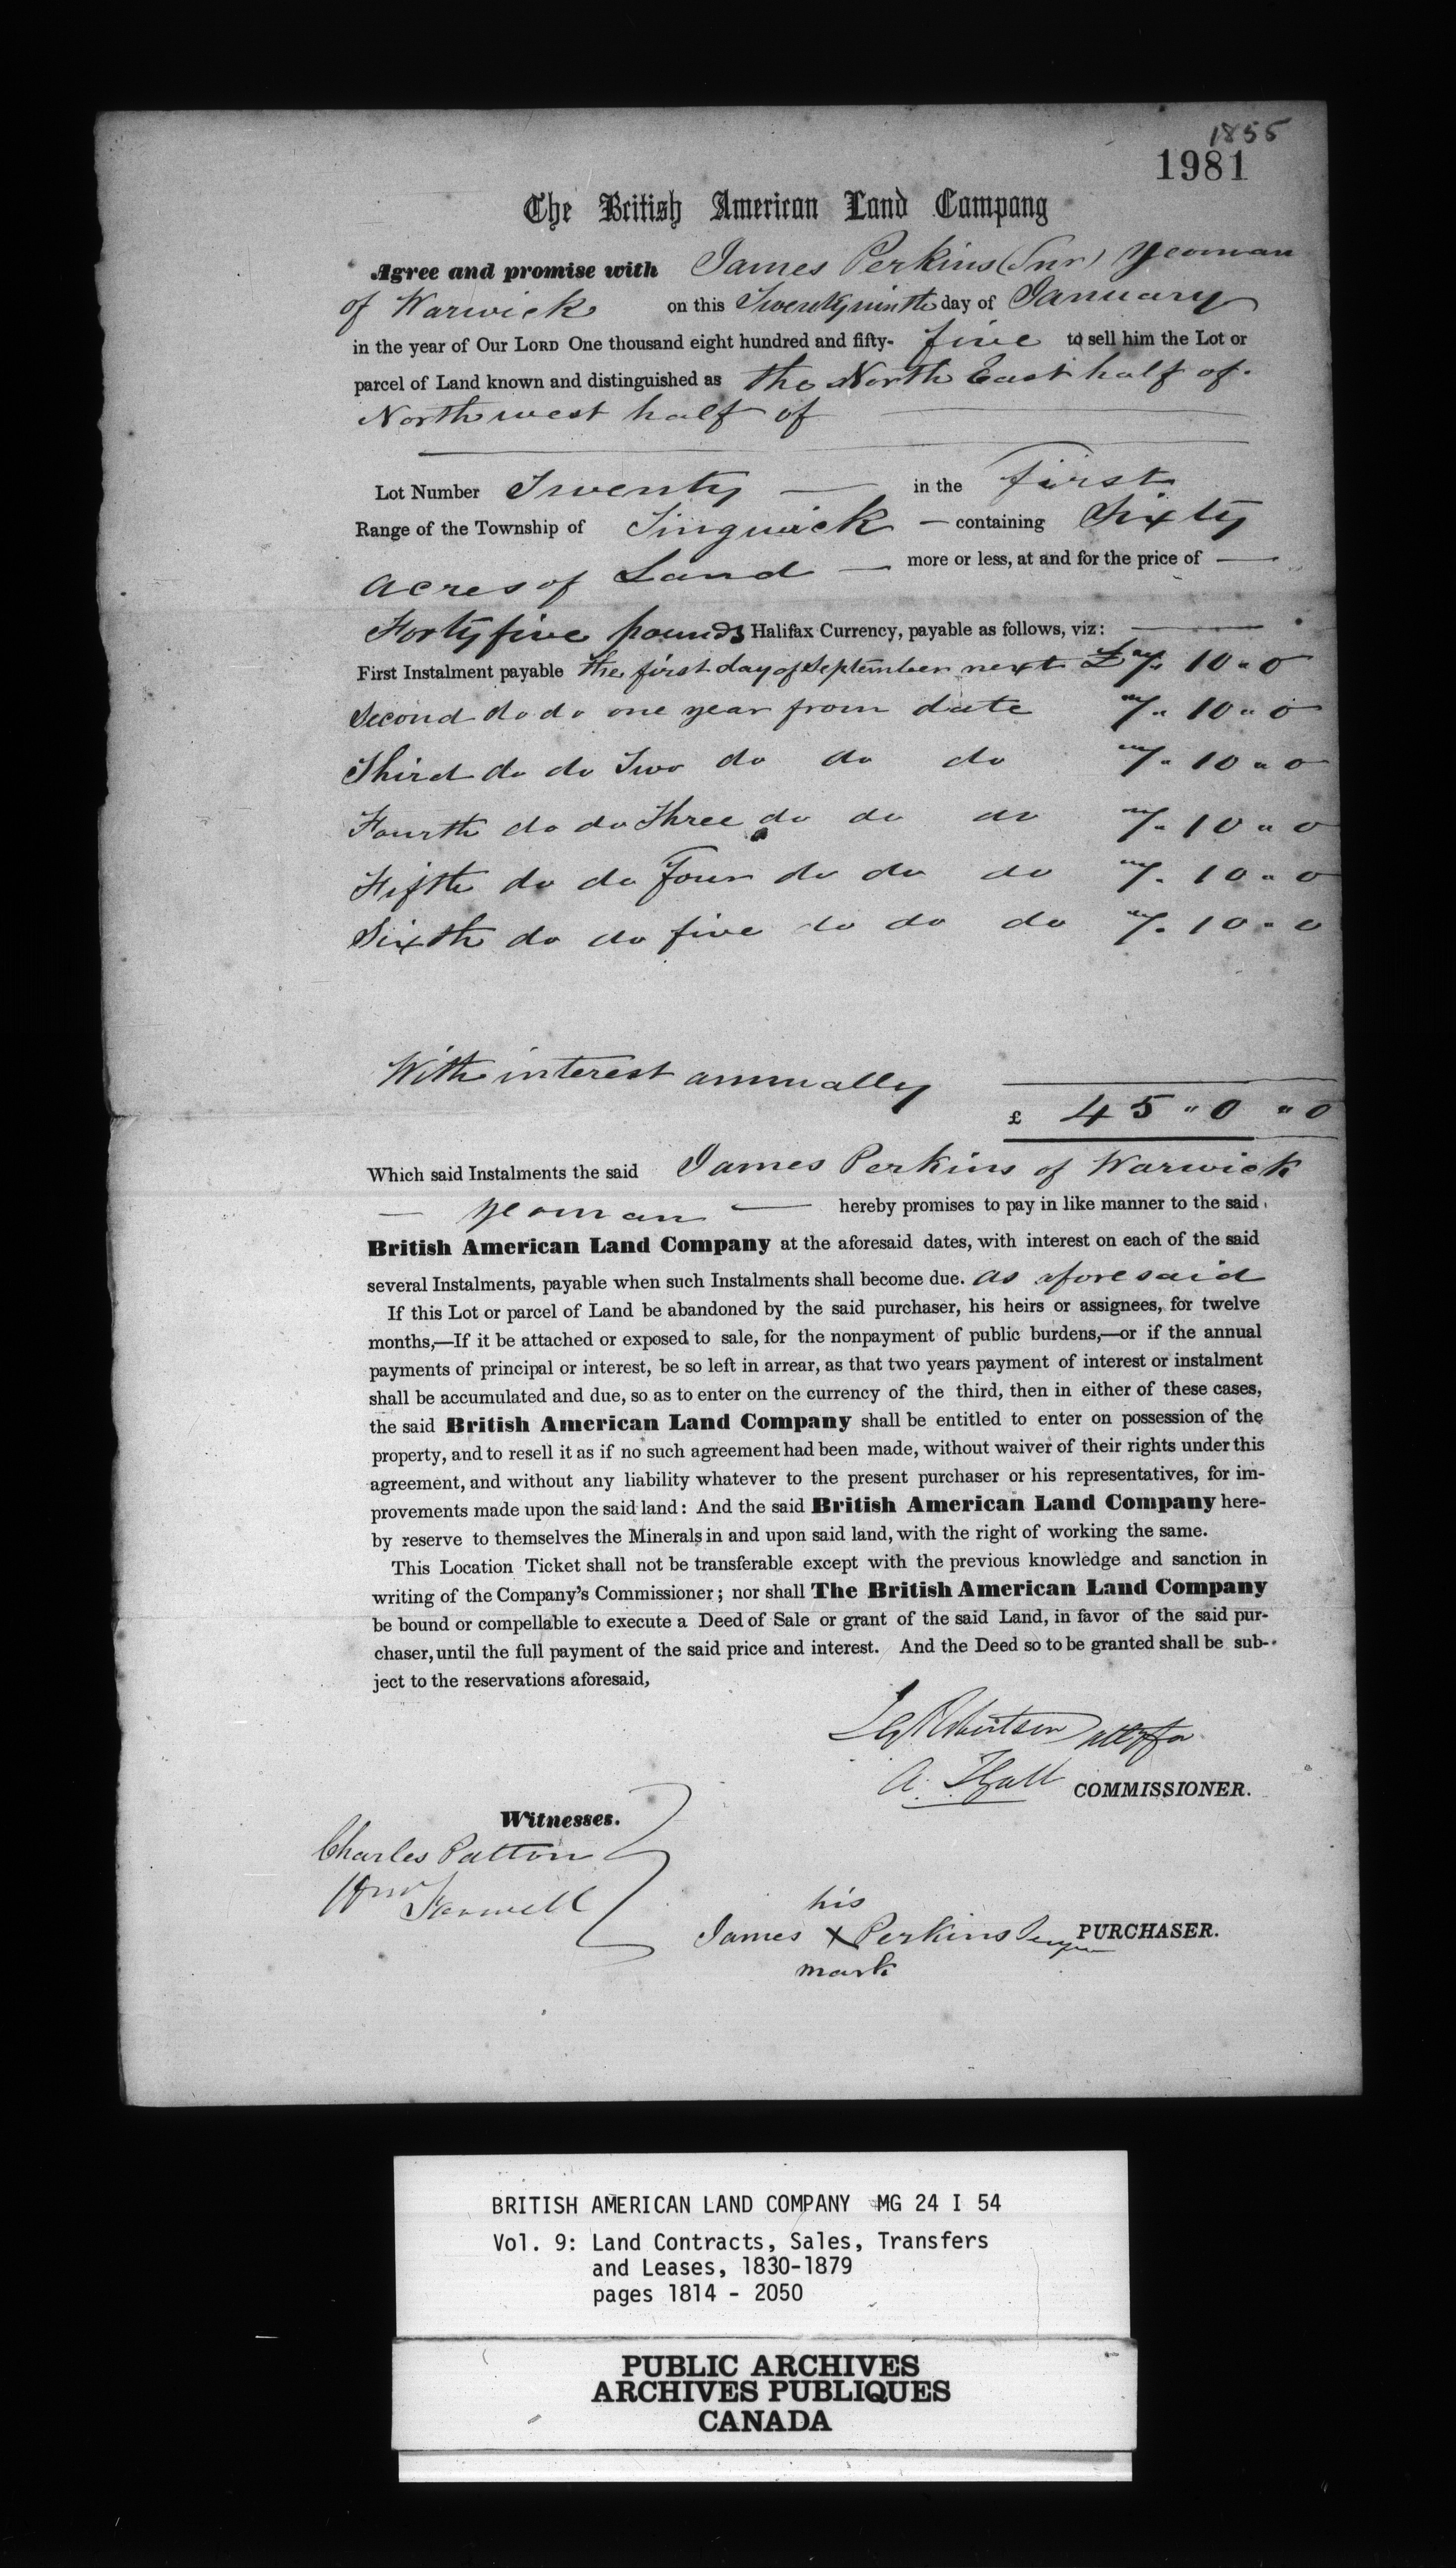 1855
1981
The British American Land Company
Agree and promise with James Perkins (Snr) Yeoman
of Warwick on this Twenty ninth day of January
in the year of Our LORD One thousand eight hundred and fifty- five to sell him the Lot or
parcel of Land known and distinguished as the North East half of
North west half of
Lot Number Twenty — in the First
Range of the Township of Tingwick — containing Sixty
acres of Land — more or less, at and for the price of —
Forty five pounds Halifax Currency, payable as follows, viz: —
First Instalment payable the first day of September next £7 " 10 " 0
Second do do one year from date 7 " 10 " 0
Third do do Two do do do 7 " 10 " 0
Fourth do do Three do do do 7 " 10 " 0
Fifth do do Four do do do 7 " 10 " 0
Sixth do do five do do do 7 " 10 " 0
With interest annually
£ 45 " 0 " 0
Which said Instalments the said James Perkins of Warwick
— yeoman — hereby promises to pay in like manner to the said
British American Land Company at the aforesaid dates, with interest on each of the said
several Instalments, payable when such Instalments shall become due. as aforesaid
If this Lot or parcel of Land be abandoned by the said purchaser, his heirs or assignees, for twelve
months,—If it be attached or exposed to sale, for the nonpayment of public burdens,—or if the annual
payments of principal or interest, be so left in arrear, as that two years payment of interest or instalment
shall be accumulated and due, so as to enter on the currency of the third, then in either of these cases,
the said British American Land Company shall be entitled to enter on possession of the
property, and to resell it as if no such agreement had been made, without waiver of their rights under this
agreement, and without any liability whatever to the present purchaser or his representatives, for im-
provements made upon the said land: And the said British American Land Company here-
by reserve to themselves the Minerals in and upon said land, with the right of working the same.
This Location Ticket shall not be transferable except with the previous knowledge and sanction in
writing of the Company's Commissioner; nor shall The British American Land Company
be bound or compellable to execute a Deed of Sale or grant of the said Land, in favor of the said pur-
chaser, until the full payment of the said price and interest. And the Deed so to be granted shall be sub-
ject to the reservations aforesaid,
Robertson atty for
A. T. Galt COMMISSIONER.
Witnesses.
Charles Patton
Wm Farwell
his
James X Perkins PURCHASER.
mark
BRITISH AMERICAN LAND COMPANY MG 24 I 54
Vol. 9: Land Contracts, Sales, Transfers
and Leases, 1830-1879
pages 1814 - 2050
PUBLIC ARCHIVES
ARCHIVES PUBLIQUES
CANADA